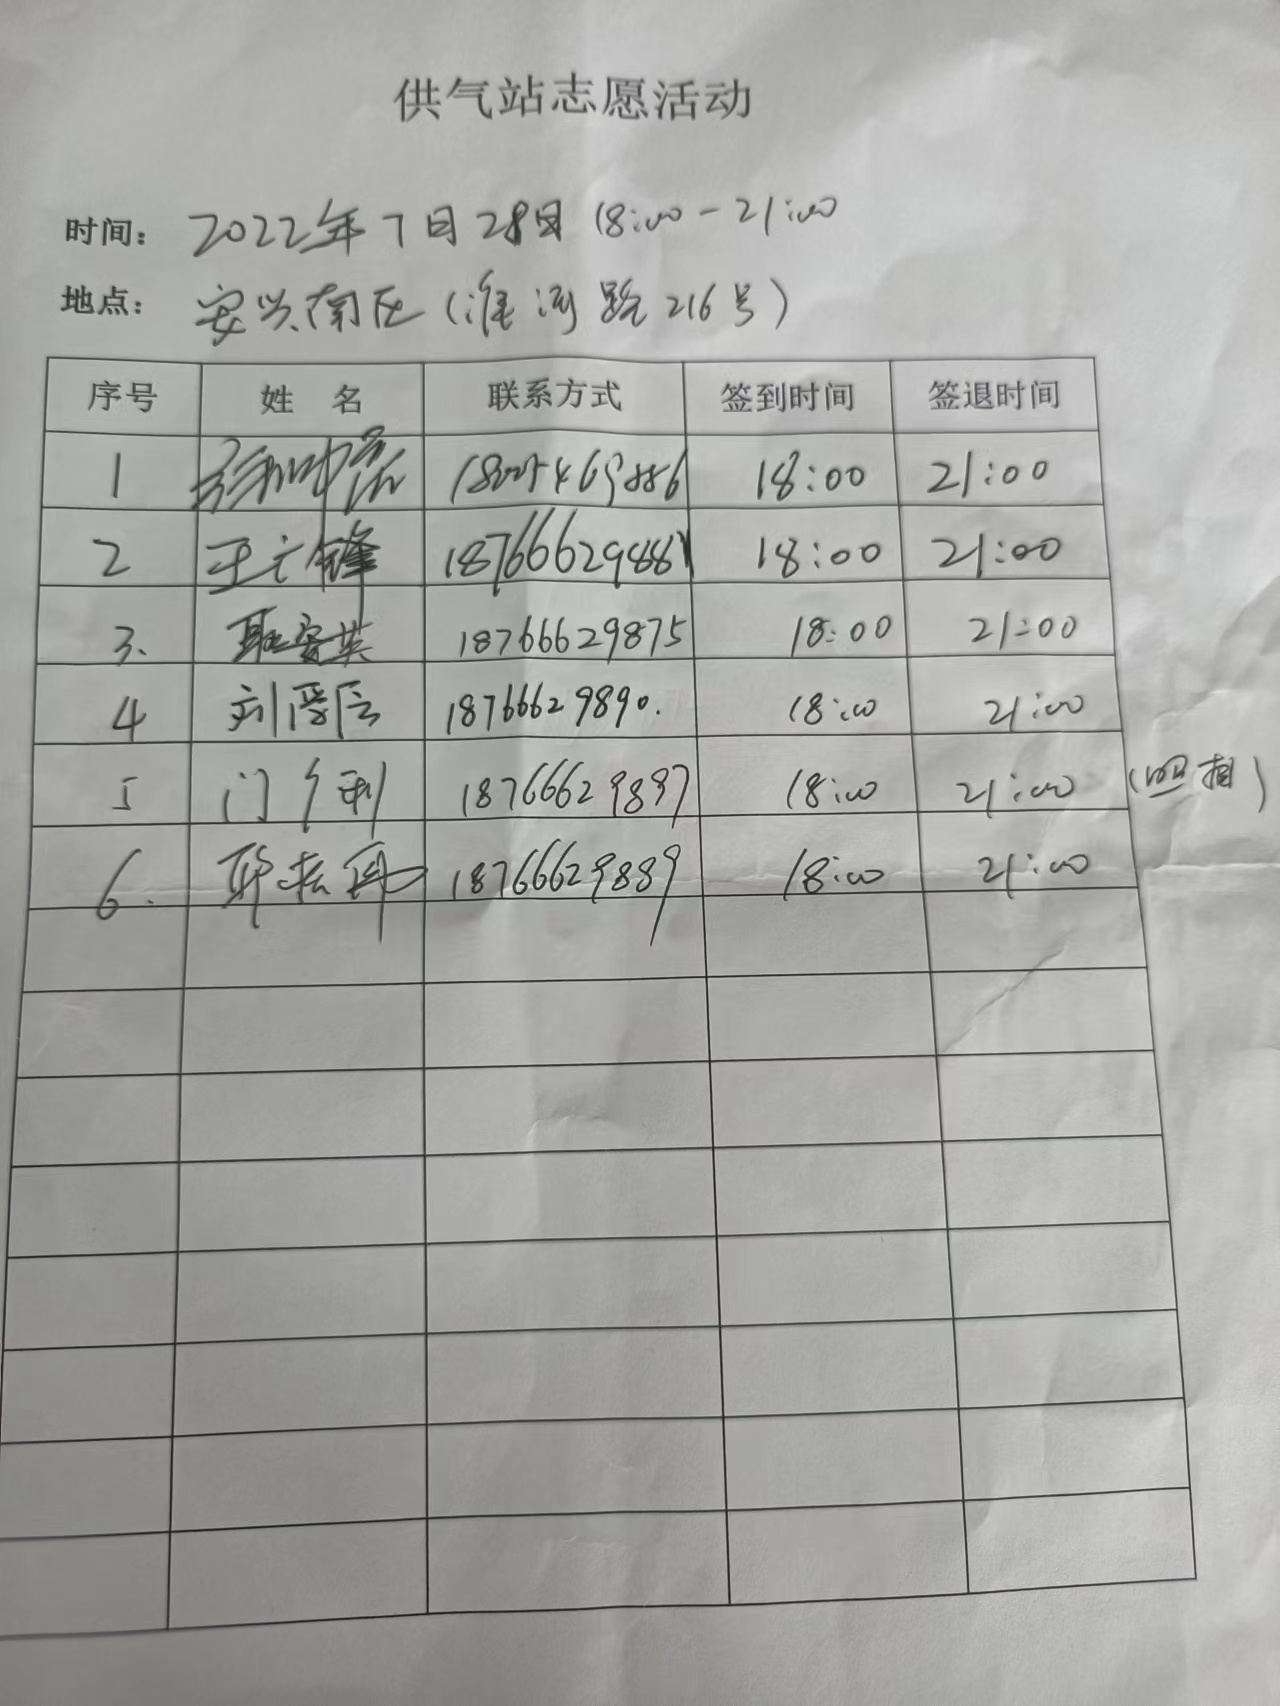 供气站志愿活动
时间： 2022年7月28日 18:00-21:00
地点： 安兴南区(淮河路216号)
序号 姓 名 联系方式 签到时间 签退时间
1 18:00 21:00
2 王广锋 18766629881 18:00 21:00
3. 18766629875 18:00 21:00
4 18766629890. 18:00 21:00
5 18766629897 18:00 21:00 (照相)
6. 18766629889 18:00 21:00